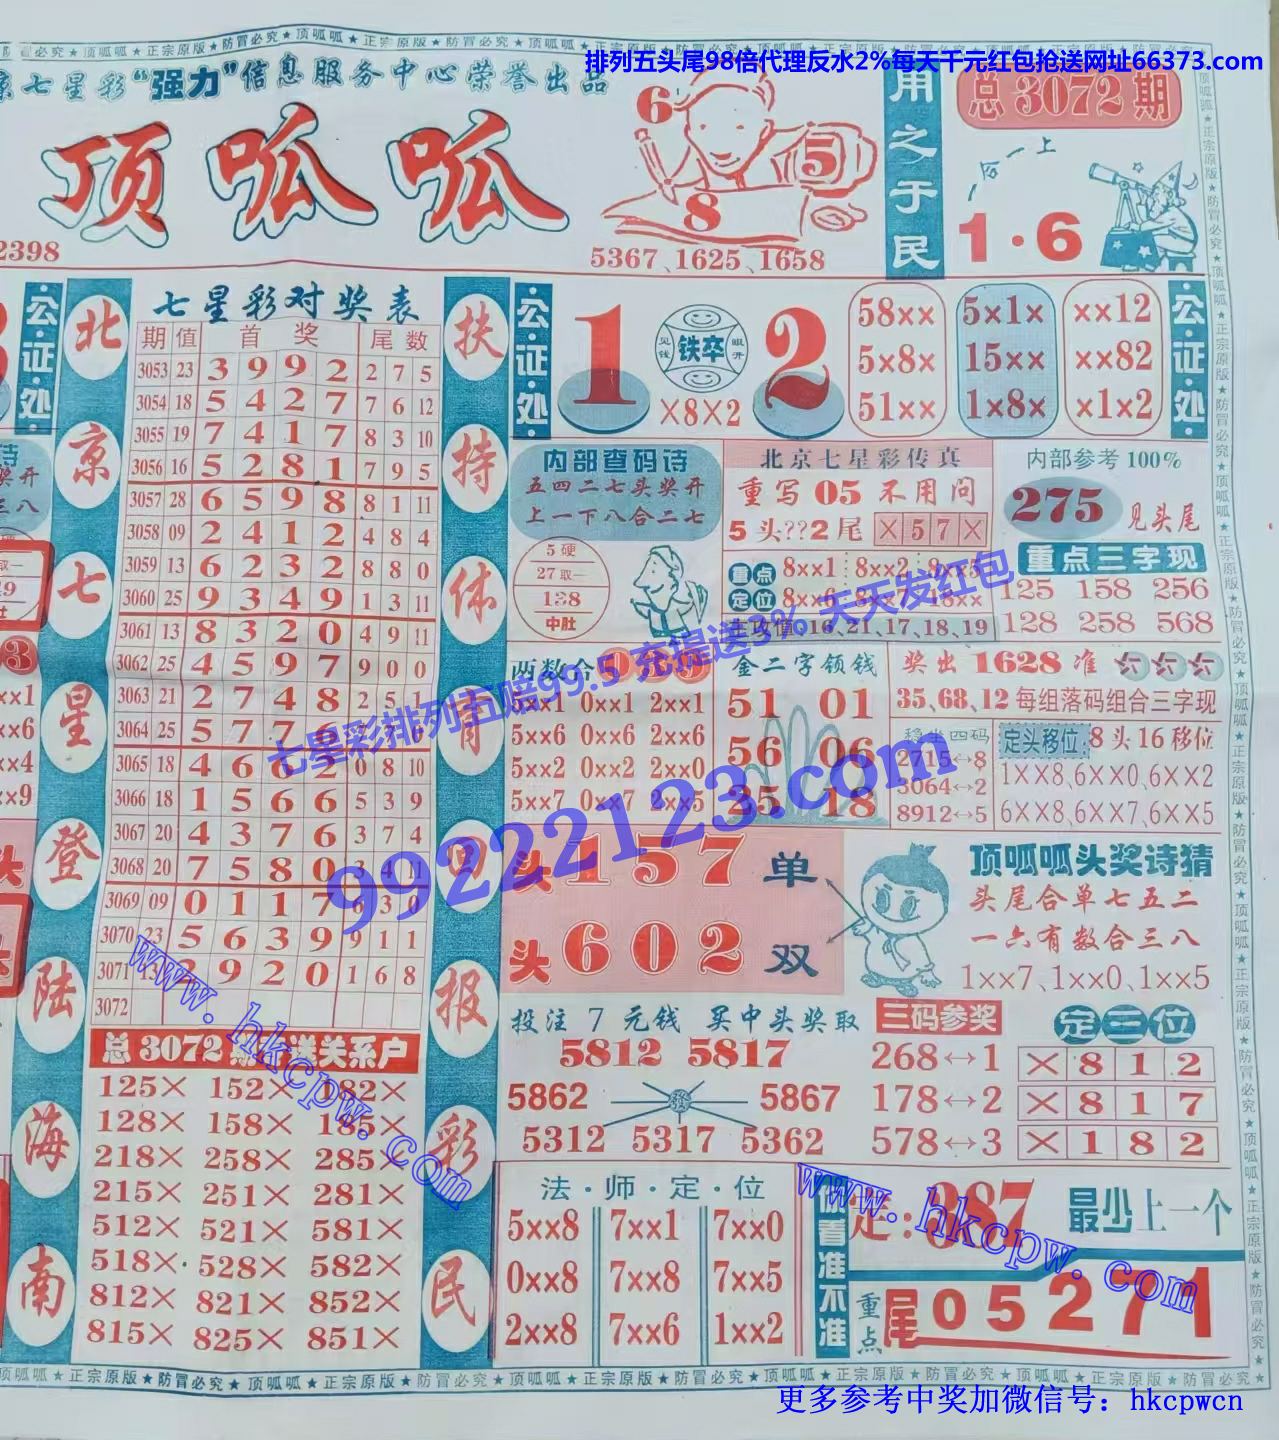 排列五头尾98倍代理反水2%每天千元红包抢送网址66373.com
七星彩“强力”信息服务中心荣誉出品
顶呱呱
2398
6
5
8
5367、1625、1658
用之于民
总3072期
一合一上
1·6
北京七星登陆海南
七星彩对奖表
期 值 首奖 尾数
3053 23 3 9 9 2 2 7 5
3054 18 5 4 2 7 7 6 12
3055 19 7 4 1 7 8 3 10
3056 16 5 2 8 1 7 9 5
3057 28 6 5 9 8 8 1 11
3058 09 2 4 1 2 4 8 4
3059 13 6 2 3 2 8 8 0
3060 25 9 3 4 9 1 3 11
3061 13 8 3 2 0 4 9 11
3062 25 4 5 9 7 9 0 0
3063 21 2 7 4 8 2 5 1
3064 25 5 7 7 6
3065 18 4 6 6 2 0 8 10
3066 18 1 5 6 6 5 3 9
3067 20 4 3 7 6 3 7 4
3068 20 7 5 8 0 3 4 11
3069 09 0 1 1 7 6 3 0
3070 23 5 6 3 9 9 1 1
3071 13 2 9 2 0 1 6 8
3072
总3072期 关系户
125× 152× 182×
128× 158× 185×
218× 258× 285×
215× 251× 281×
512× 521× 581×
518× 528× 582×
812× 821× 852×
815× 825× 851×
扶持体育
报彩民
公证处
1
见钱 铁卒 眼开
×8×2
2
58×× 5×1× ××12
5×8× 15×× ××82
51×× 1×8× ×1×2
公证处
内部查码诗
五四二七头奖开
上一下八合二七
5硬
27取一
138
中肚
北京七星彩传真
重写05不用问
5头??2尾 ×57×
重点定位
8××1 8××2 8××5
主攻值:16、21、17、18、19
内部参考100%
275 见头尾
重点三字现
125 158 256
128 258 568
两数合
5××1 0××1 2××1
5××6 0××6 2××6
5××2 0××2 2××0
5××7 0××7 2××5
金二字领钱
51 01
56 06
25 18
奖出1628准
35、68、12每组落码组合三字现
稳坐四码
2715↔8
3064↔2
8912↔5
定头移位:8头16移位
1××8、6××0、6××2
6××8、6××7、6××5
头157单
头602双
顶呱呱头奖诗猜
头尾合单七五二
一六有数合三八
1××7、1××0、1××5
投注7元钱 买中头奖取
5812 5817
5862 5867
5312 5317 5362
三码参奖
268↔1
178↔2
578↔3
定三位
×812
×817
×182
法·师·定·位
5××8 7××1 7××0
0××8 7××8 7××5
2××8 7××6 1××2
你看准不准
定:387 最少上一个
重点 尾05271
七星彩排列五赔99.5 充提送3% 天天发红包
99222123.com
www.hkcpw.com
www.hkcpw.com
顶呱呱★正宗原版★防冒必究★顶呱呱★正宗原版★防冒必究★顶呱呱★正宗原版★防冒必究★顶呱呱★正宗原版★防冒必究★
更多参考中奖加微信号：hkcpwcn